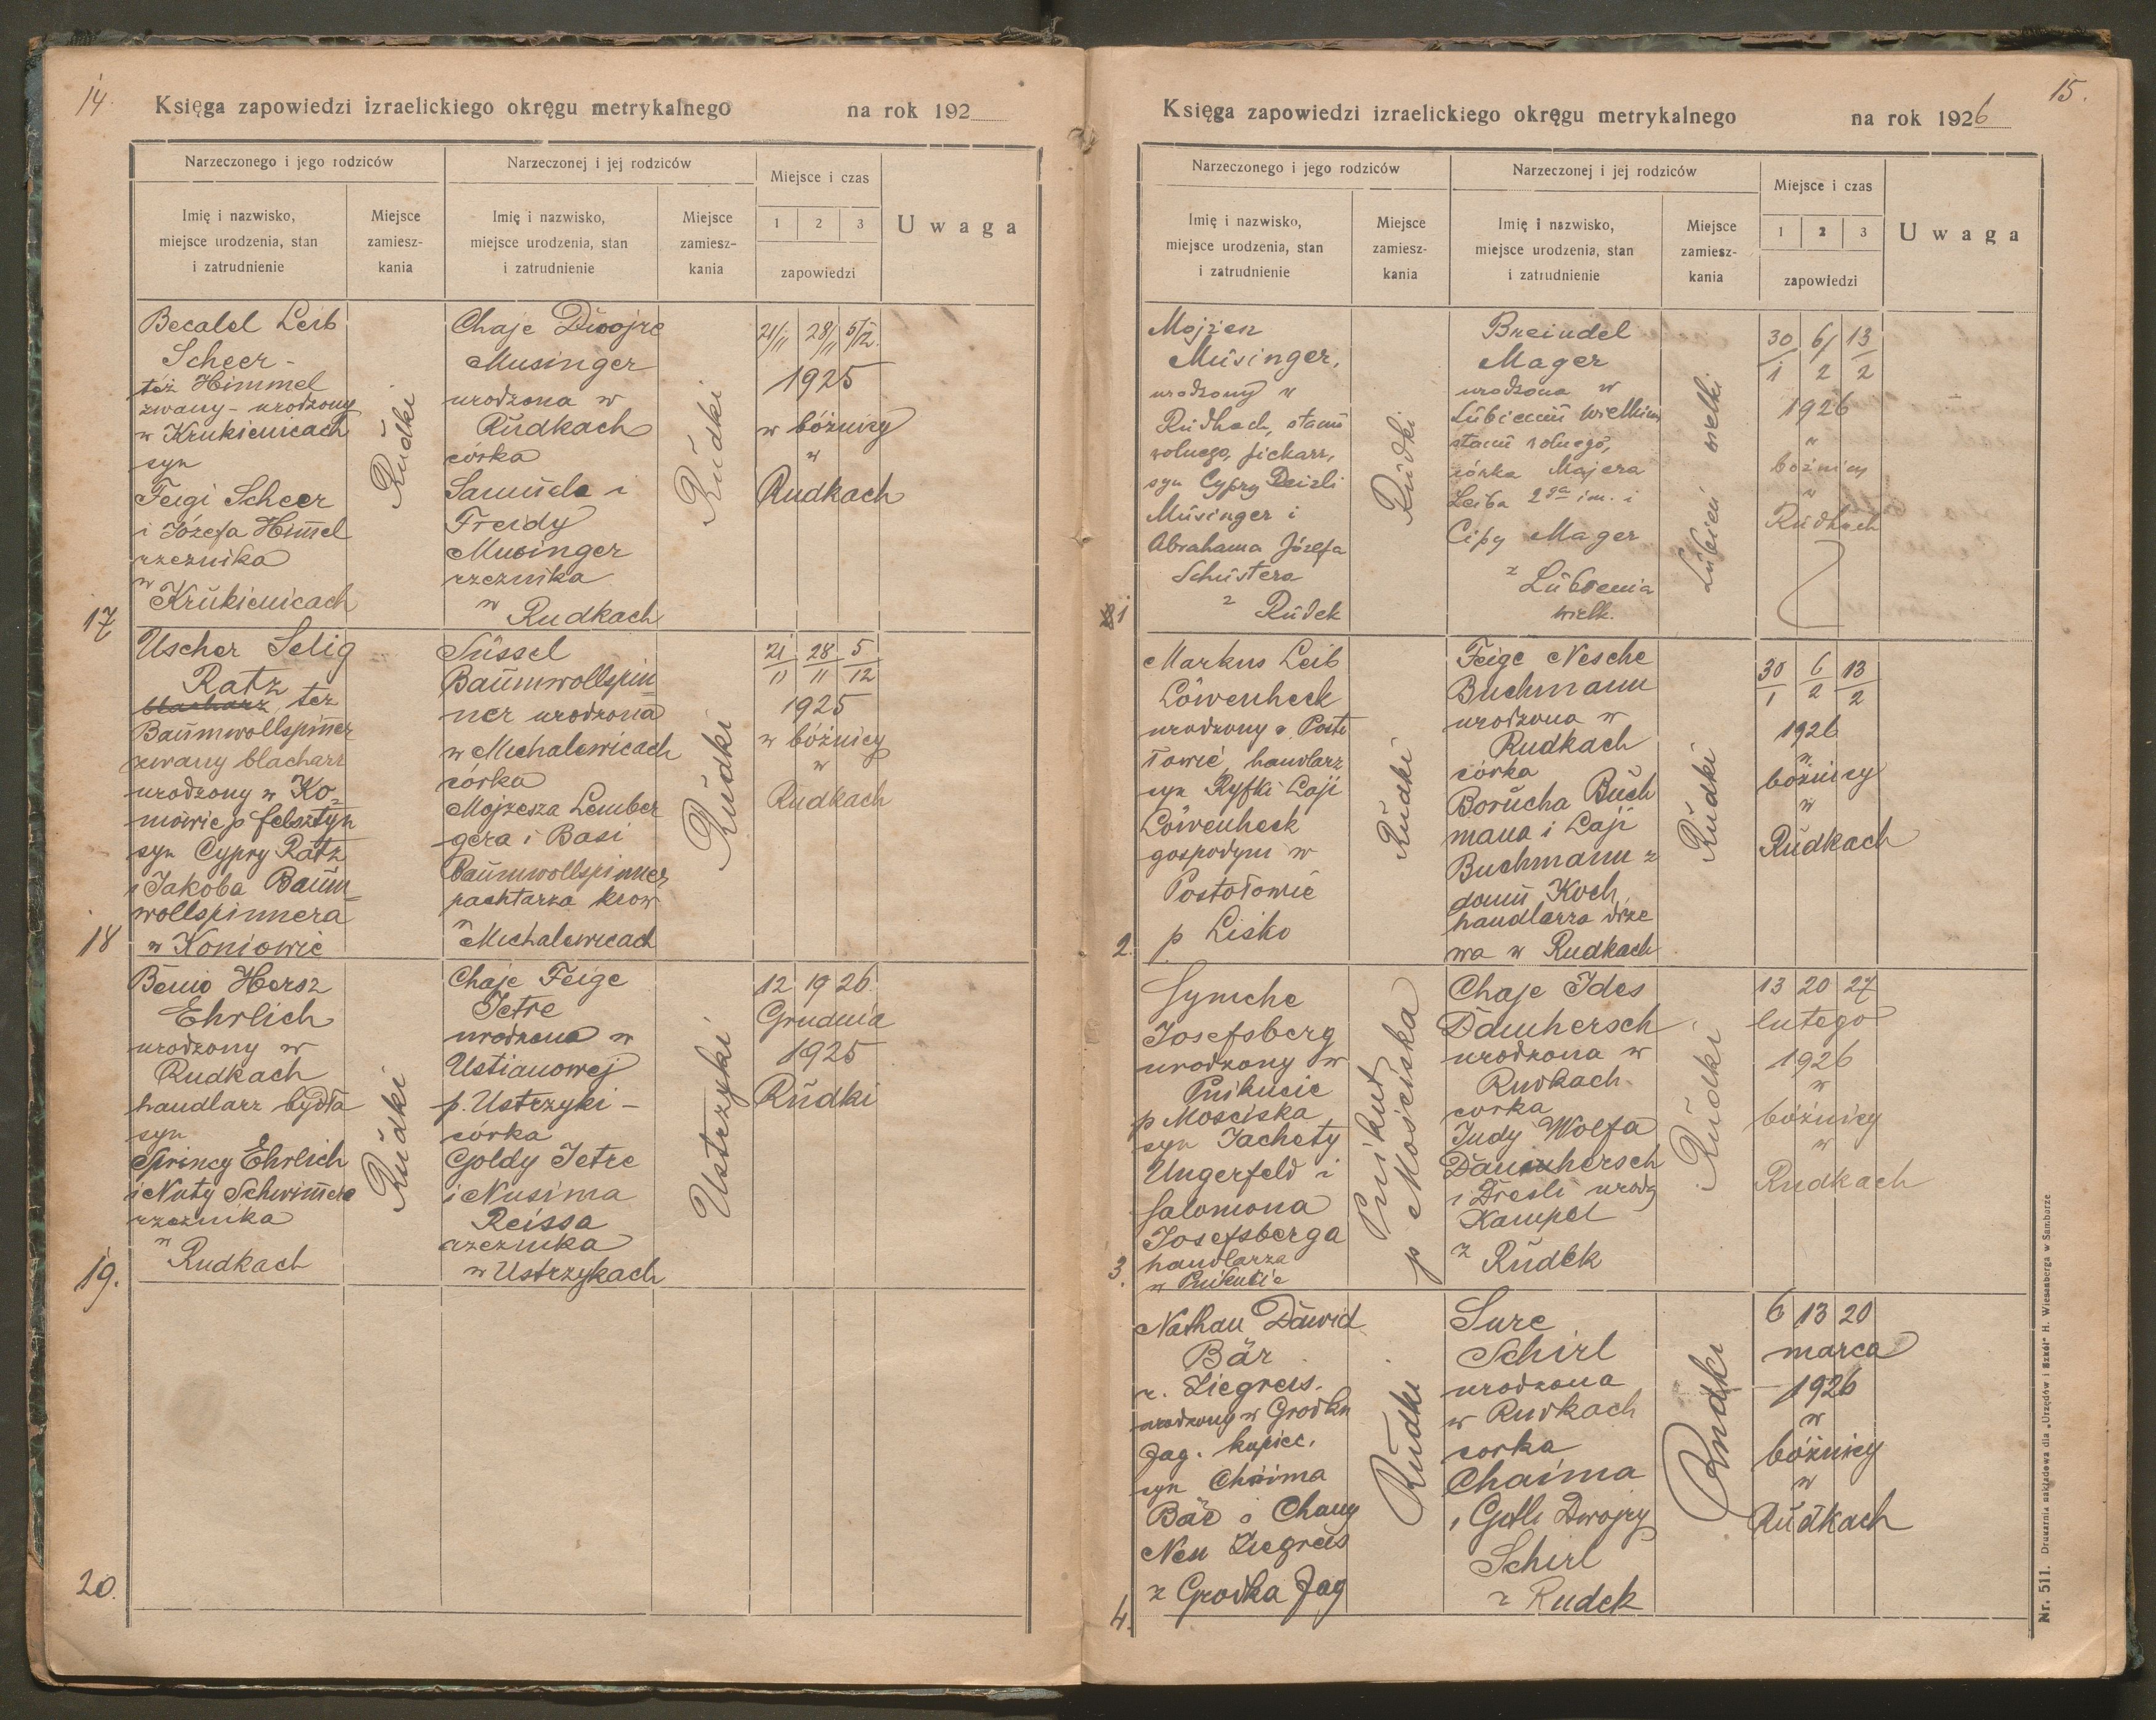 14.
Księga zapowiedzi izraelickiego okręgu metrykalnego na rok 192
Narzeczonego i jego rodziców
Narzeczonej i jej rodziców
Miejsce i czas
Uwaga
Imię i nazwisko,
miejsce urodzenia, stan
i zatrudnienie
Miejsce
zamiesz-
kania
Imię i nazwisko,
miejsce urodzenia, stan
i zatrudnienie
Miejsce
zamiesz-
kania
1 2 3
zapowiedzi
17
Becalel Leib
Scheer -
też Himmel
zwany - urodzony
w Krukienicach
syn
Feigi Scheer
i Józefa Him̄el
rzeźnika
w
Krukienicach
Rudki
Chaje Dwojre
Musinger
urodzona w
Rudkach
córka
Samuela i
Freidy
Musinger
rzeźnika
w Rudkach
Rudki
21/11 28/11 5/12.
1925
w bóżnicy
w
Rudkach
18
Uscher Selig
Ratz
blacharz też
Baumwollspin̄er
zwany blacharz
urodzony w Ko=
niowie p felsztyn
syn Cypry Ratz
i Jakoba Baum=
wollspinnera
w Koniowie
Süssel
Baumwollspin=
ner urodzona
w Michalewicach
córka
Mojżesza Lember
gera i Basi
Baumwollspinner
pachtarza krow
w
Michalewicach
Rudki
21/11 28/11 5/12
1925
w bóżnicy
w
Rudkach
19.
Benio Hersz
Ehrlich
urodzony w
Rudkach
handlarz bydła
syn
Sprincy Ehrlich
i Nuty Schwim̄era
rzeźnika
w
Rudkach
Rudki
Chaje Feige
Jetre
urodzona w
Ustianowej
p. Ustrzyki -
córka
Goldy Jetre
i Nusima
Reissa
rzeźnika
w Ustrzykach
Ustrzyki
12 19 26.
Grudnia
1925
Rudki
20.
15.
Księga zapowiedzi izraelickiego okręgu metrykalnego na rok 1926
Narzeczonego i jego rodziców
Narzeczonej i jej rodziców
Miejsce i czas
Uwaga
Imię i nazwisko,
miejsce urodzenia, stan
i zatrudnienie
Miejsce
zamiesz-
kania
Imię i nazwisko,
miejsce urodzenia, stan
i zatrudnienie
Miejsce
zamiesz-
kania
1 2 3
zapowiedzi
1
Mojżesz
Musinger,
urodzony w
Rudkach, stanu
wolnego,
syn Cypry Deizli
Musinger i
Abrahama Józefa
Schustera
z Rudek
Rudki
Breindel
Mager
urodzona w
Lubieniu wielkim
stanu wolnego,
córka Majera
Leiba 2ga im. i
Cipy Mager
z Lubienia
wielk.
Lubień wielki
30/1 6/2 13/2
1926
w
bóżnicy
w
Rudkach
2.
Markus Leib
Löwenheck
urodzony w Posto
łowie, handlarz
syn Ryfki Łaji
Löwenheck
gospodyni w
Postołowie
p Lisko
Rudki
Feige Nesche
Buchmann
urodzona w
Rudkach
córka
Borucha Buch
mana i Łaji
Buchmann z
domu Koch
handlarza drze
wa w Rudkach
Rudki
30/1 6/2 13/2
1926
w
bóżnicy
w
Rudkach
3.
Symche
Josefsberg
urodzony w
Pnikucie
p Mosciska
syn Jachety
Ungerfeld i
Salomona
Josefsberga
handlarza
w Pnikucie
Pnikut
p Mościska
Chaje Ides
Dauhersch
urodzona w
Rudkach
corka
Judy Wolfa
Dauhersch
i Dresli urodz
Kampel
z Rudek
Rudki
13 20 27
lutego
1926
w
bóżnicy
w
Rudkach
4.
Nathan Dawid
Bär
r. Ziegreis.
urodzony w Grodku
Jag. kupiec.
syn Chaima
Bär i Chany
Nen Ziegreis
z Grodka Jag
Rudki
Sure
Schirl
urodzona
w Rudkach
corka
Chaima
i Gitli Dwojry
Schirl
z Rudek
Rudki
6 13 20
marca
1926
w
bóżnicy
w
Rudkach
Nr. 511. Drukarnia nakładowa dla „Urzędów i Szkół" H. Wiesenberga w Samborze